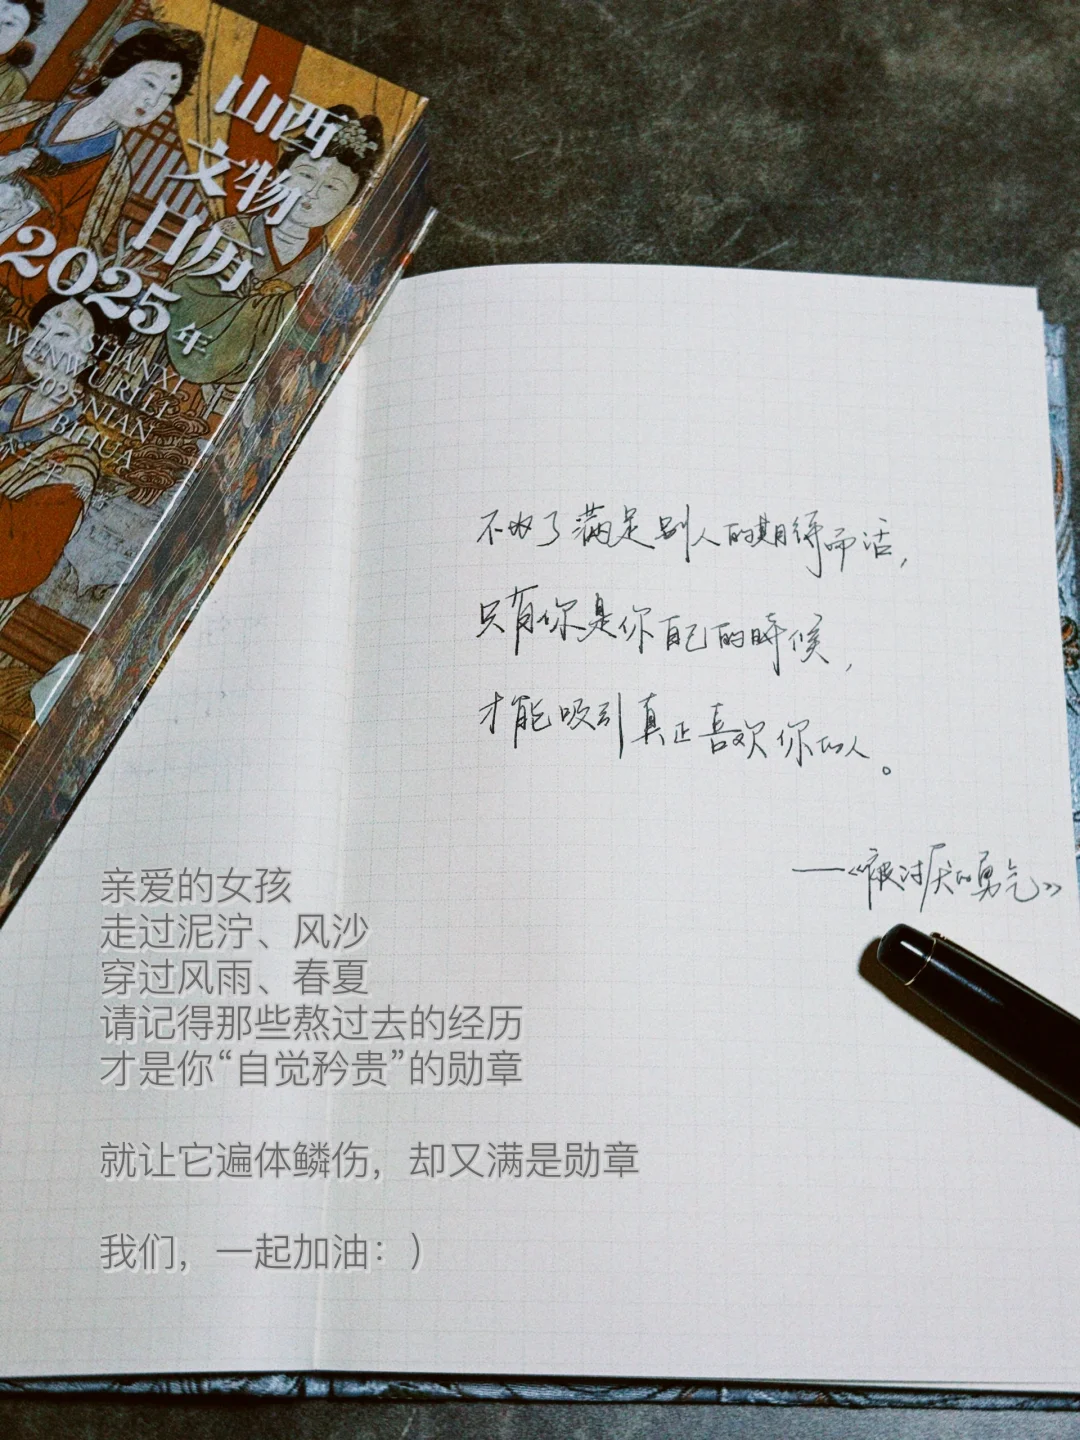 山西
文物
日历
2025年
SHANXI
WENWU RILI
2025 NIAN
BIHUA
不为了满足别人的期待而活，
只有你是你自己的时候，
才能吸引真正喜欢你的人。
——《被讨厌的勇气》
亲爱的女孩
走过泥泞、风沙
穿过风雨、春夏
请记得那些熬过去的经历
才是你“自觉矜贵”的勋章
就让它遍体鳞伤，却又满是勋章
我们，一起加油：）